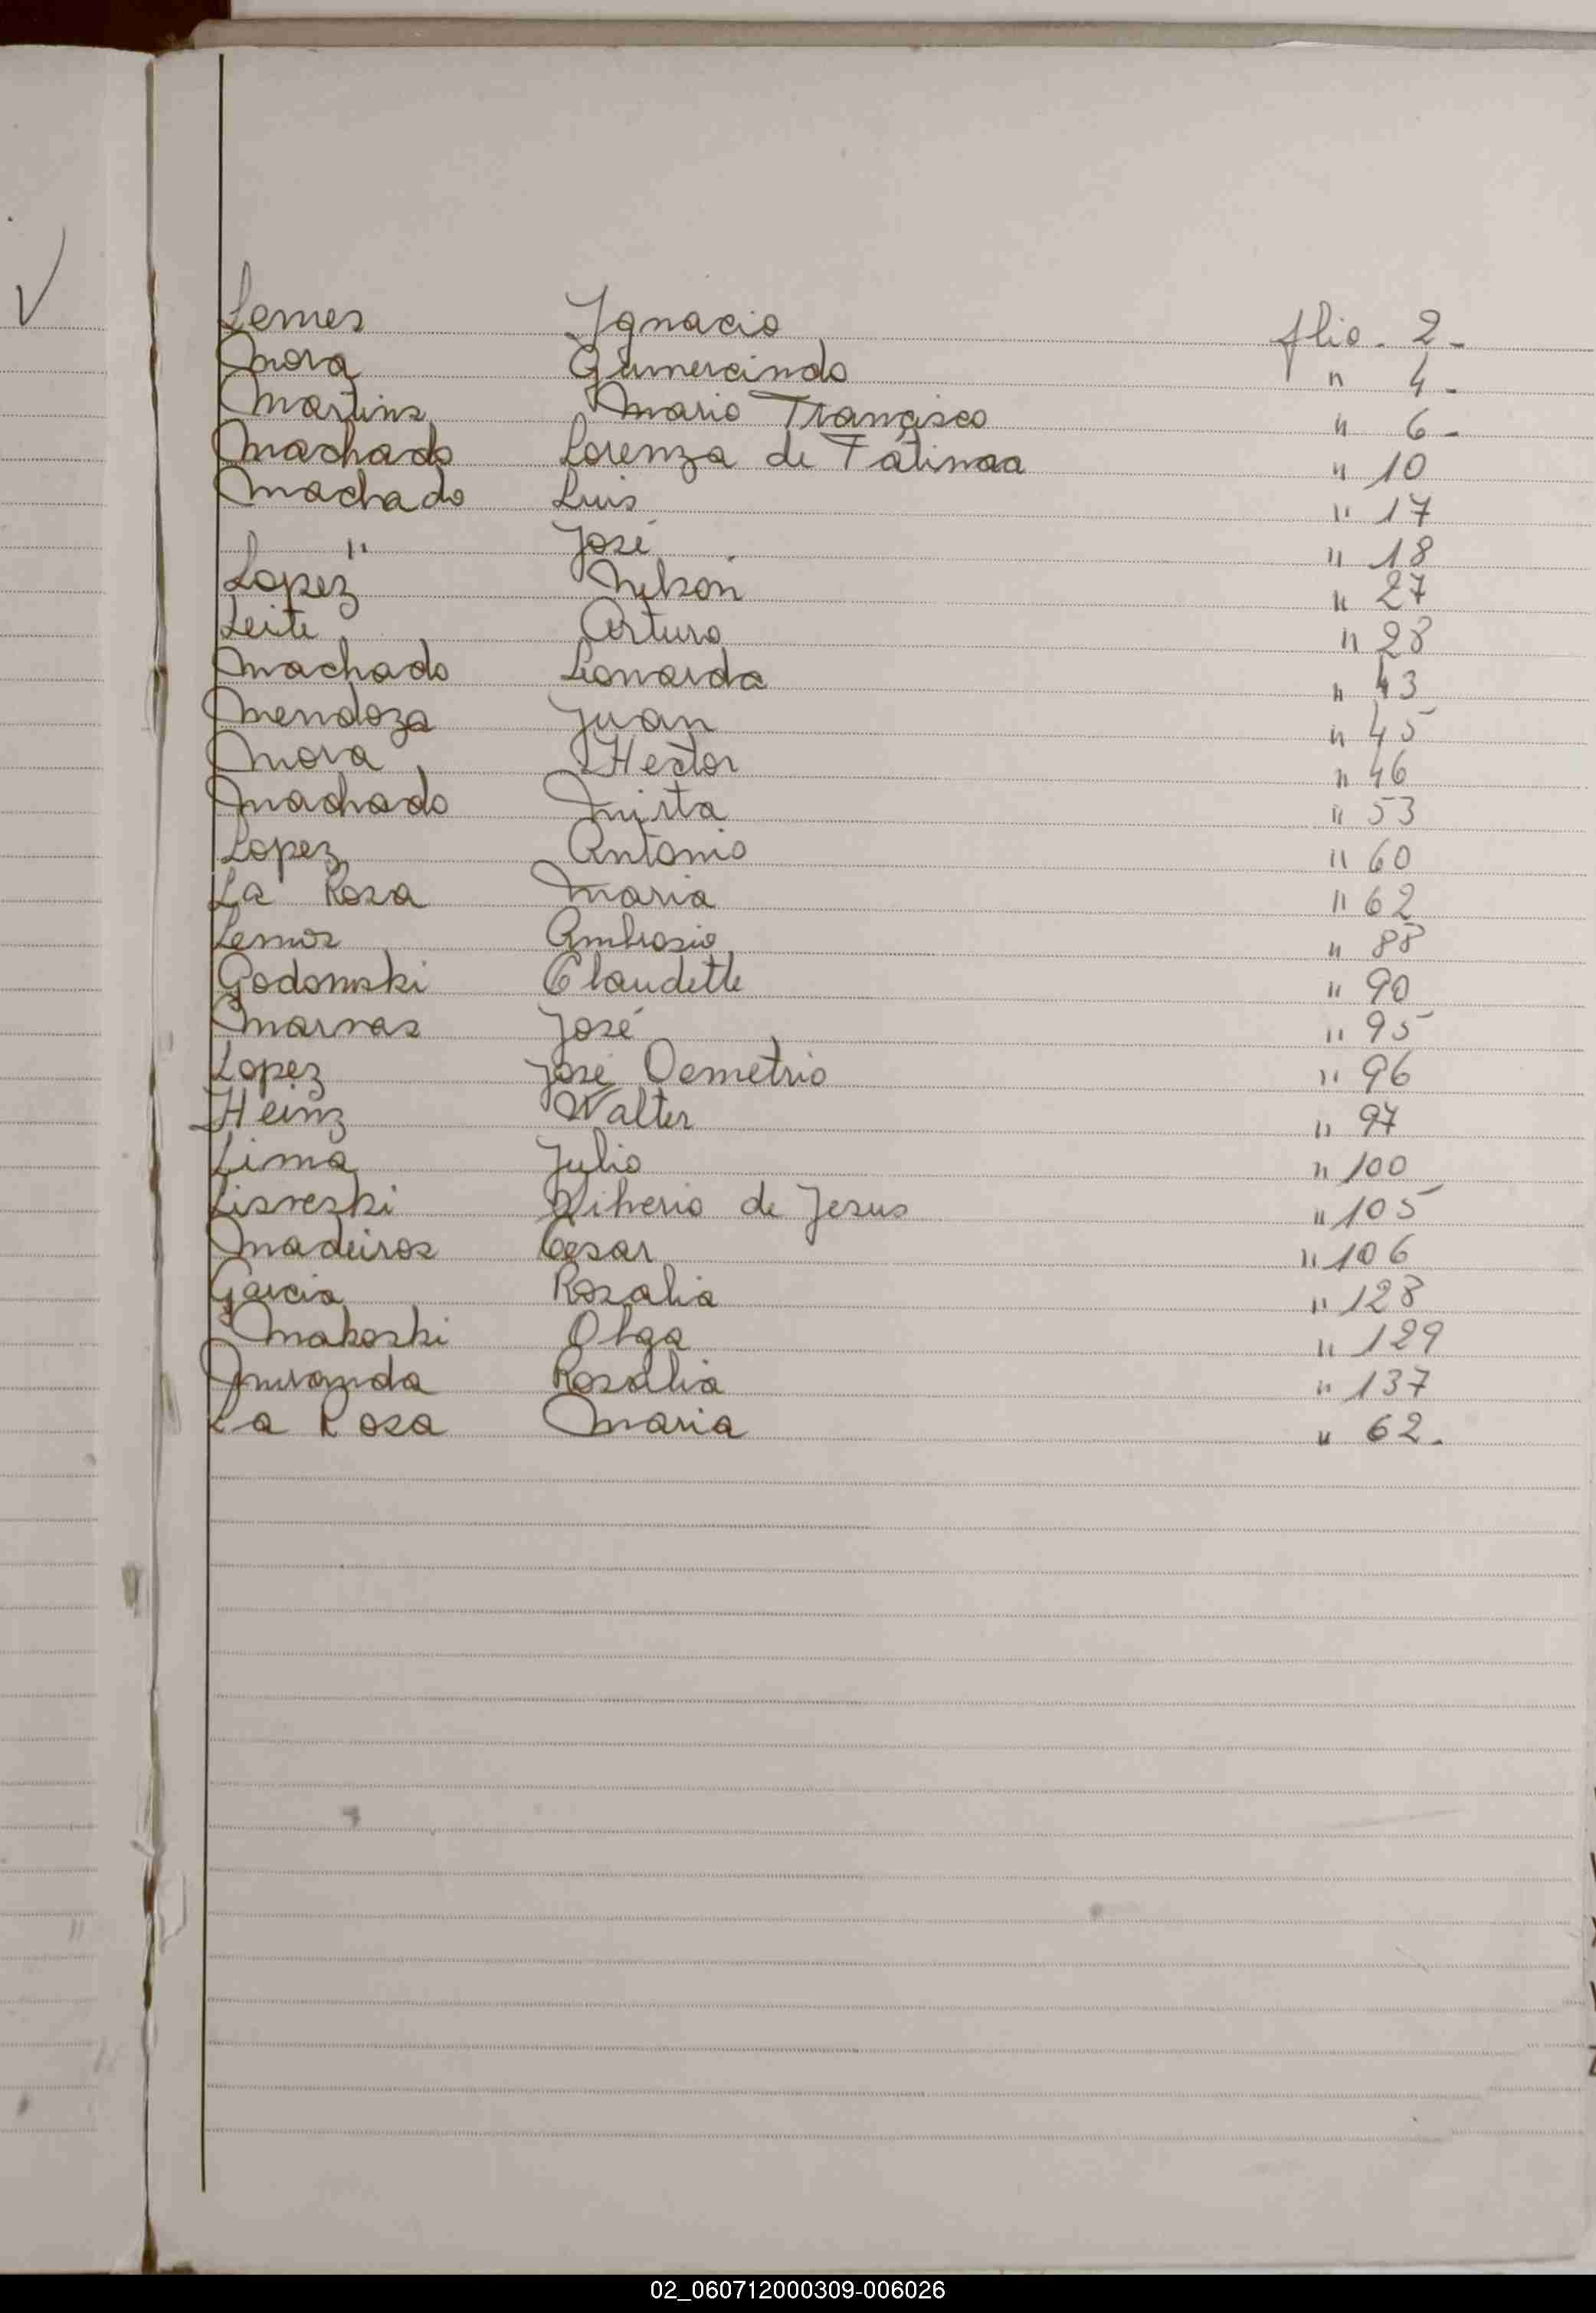 Lemes Ignacio flio. 2-
Mora Gumercindo " 4-
Martins Mario Francisco " 6-
Machado Lorenza de Fatimaa " 10
Machado Luis " 17
" José " 18
Lopez Nelson " 27
Leite Arturo " 28
Machado Leonarda " 43
Mendoza Juan " 45
Mora Hector " 46
Machado Mirta " 53
Lopez Antonio " 60
La Rosa Maria " 62
Lemos Ambrosio " 88
Godomski Claudette " 90
Marvas José " 95
Lopez José Demetrio " 96
Heinz Walter " 97
Lima Julio " 100
Lisveski de Jesus " 105
Madeiros Cesar " 106
Garcia Rosalia " 128
Makoski Olga " 129
Miranda Rosalia " 137
La Rosa Maria " 62.
02_060712000309-006026